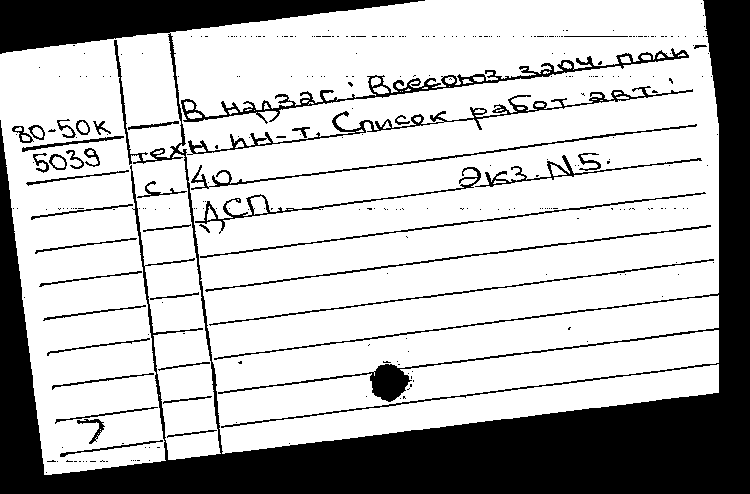 В надзаг.: Всесоюз. заоч. поли-
80-50к
техн. ин-т. Список работ авт.:
5039
с. 40.
Экз. N5.
ДСП.
7